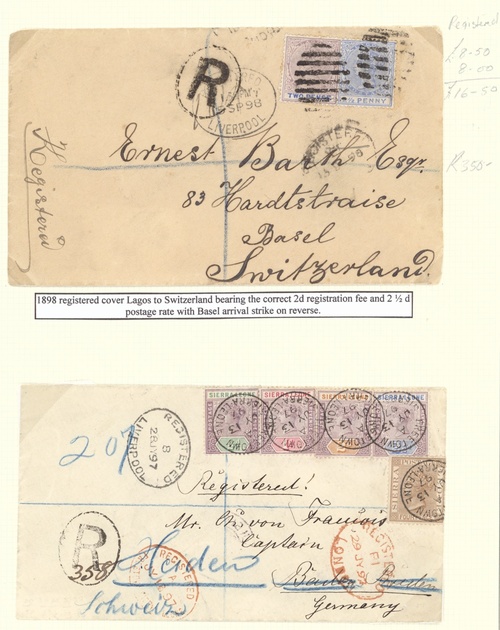 Registered
£8-50
8-00
£16-50
R350-
R
15 SP 98
LIVERPOOL
TWO PENCE
½ PENNY
REGISTERED
Registered
Ernest Barth Esqr.
83 Hardtstraise
Basel
Switzerland.
1898 registered cover Lagos to Switzerland bearing the correct 2d registration fee and 2 ½ d
postage rate with Basel arrival strike on reverse.
SIERRA LEONE
SIERRA LEONE
SIERRA LEONE
SIERRA LEONE
207
REGISTERED
8
28 JY 97
LIVERPOOL
Registered!
Mr. Ch. von François
Captain
Baden
Germany
R
358
Schweiz
REGISTERED
LONDON
29 JY 97